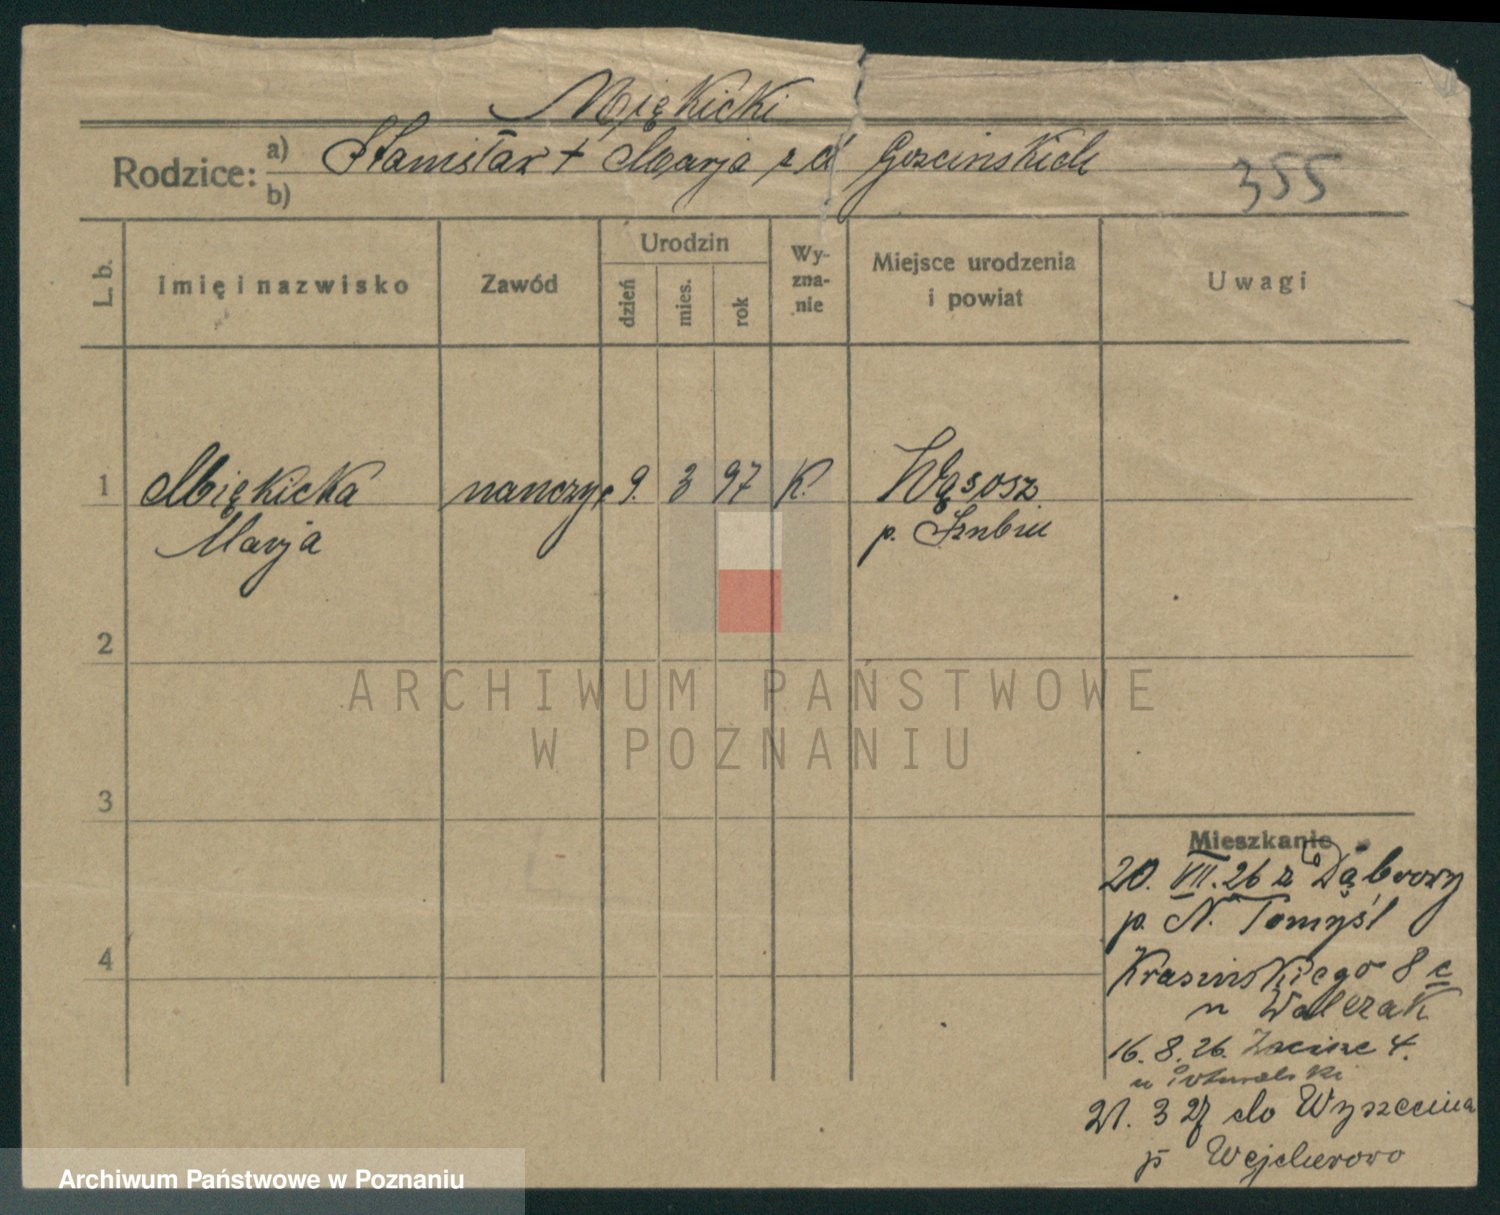 Miękicki
Rodzice: a) Stanisław + Marja z d Gościńskich
b)
355
L. b.
Imię i nazwisko
Zawód
Urodzin
dzień
mies.
rok
Wy-
zna-
nie
Miejsce urodzenia
i powiat
Uwagi
1 Miękicka nauczyc 9. 3 97 K. Wąsosz
Marja p. Szubin
2
3
4
Mieszkanie
20. VII. 26 z Dąbrowy
p. N. Tomyśl
Krasińskiego 8 c
u Walczak
16. 8. 26. Zacisze 4.
u
21. 3 27 do Wyszecina
p Wejherowo
ARCHIWUM PAŃSTWOWE
W POZNANIU
Archiwum Państwowe w Poznaniu